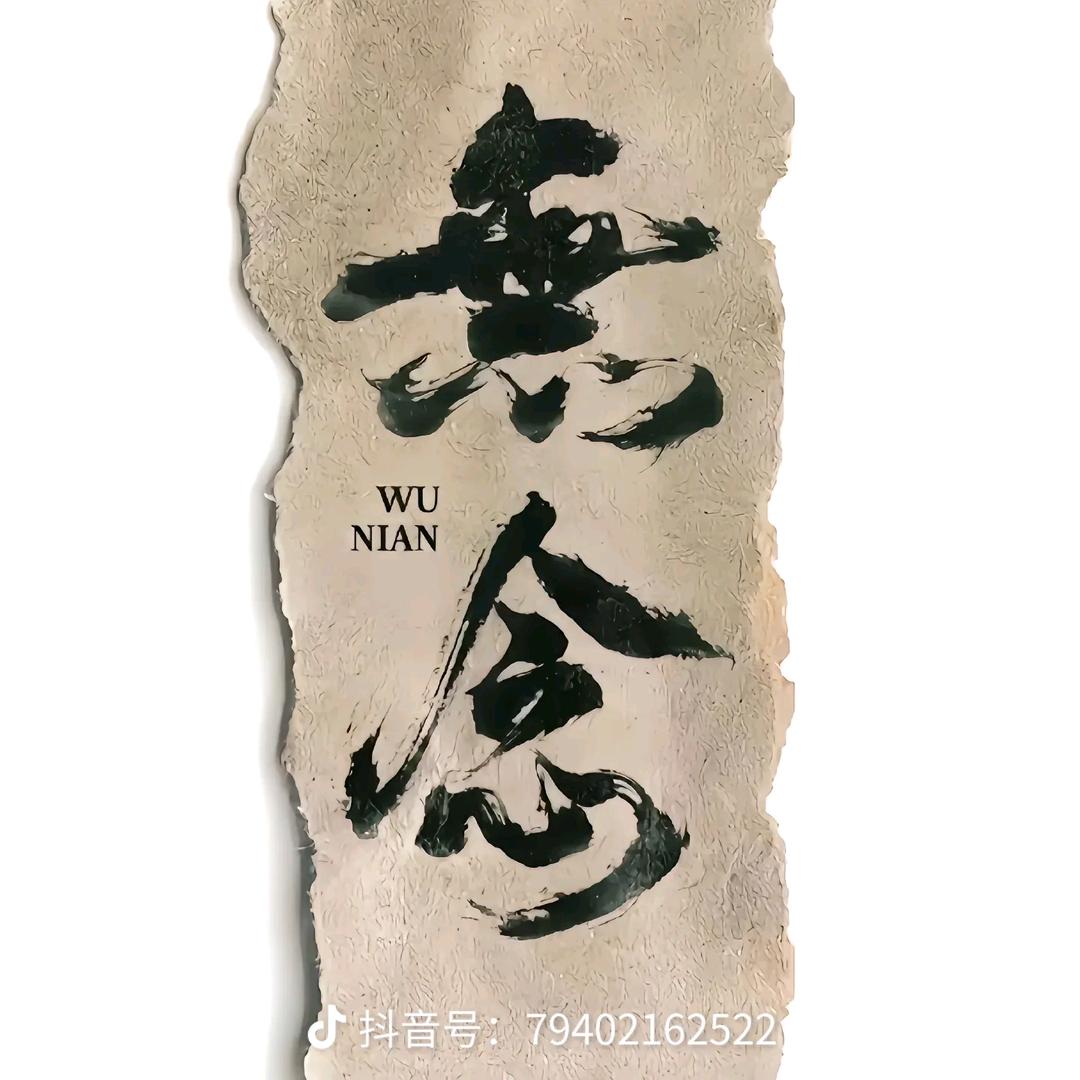 無
WU
NIAN
念
抖音号：79402162522